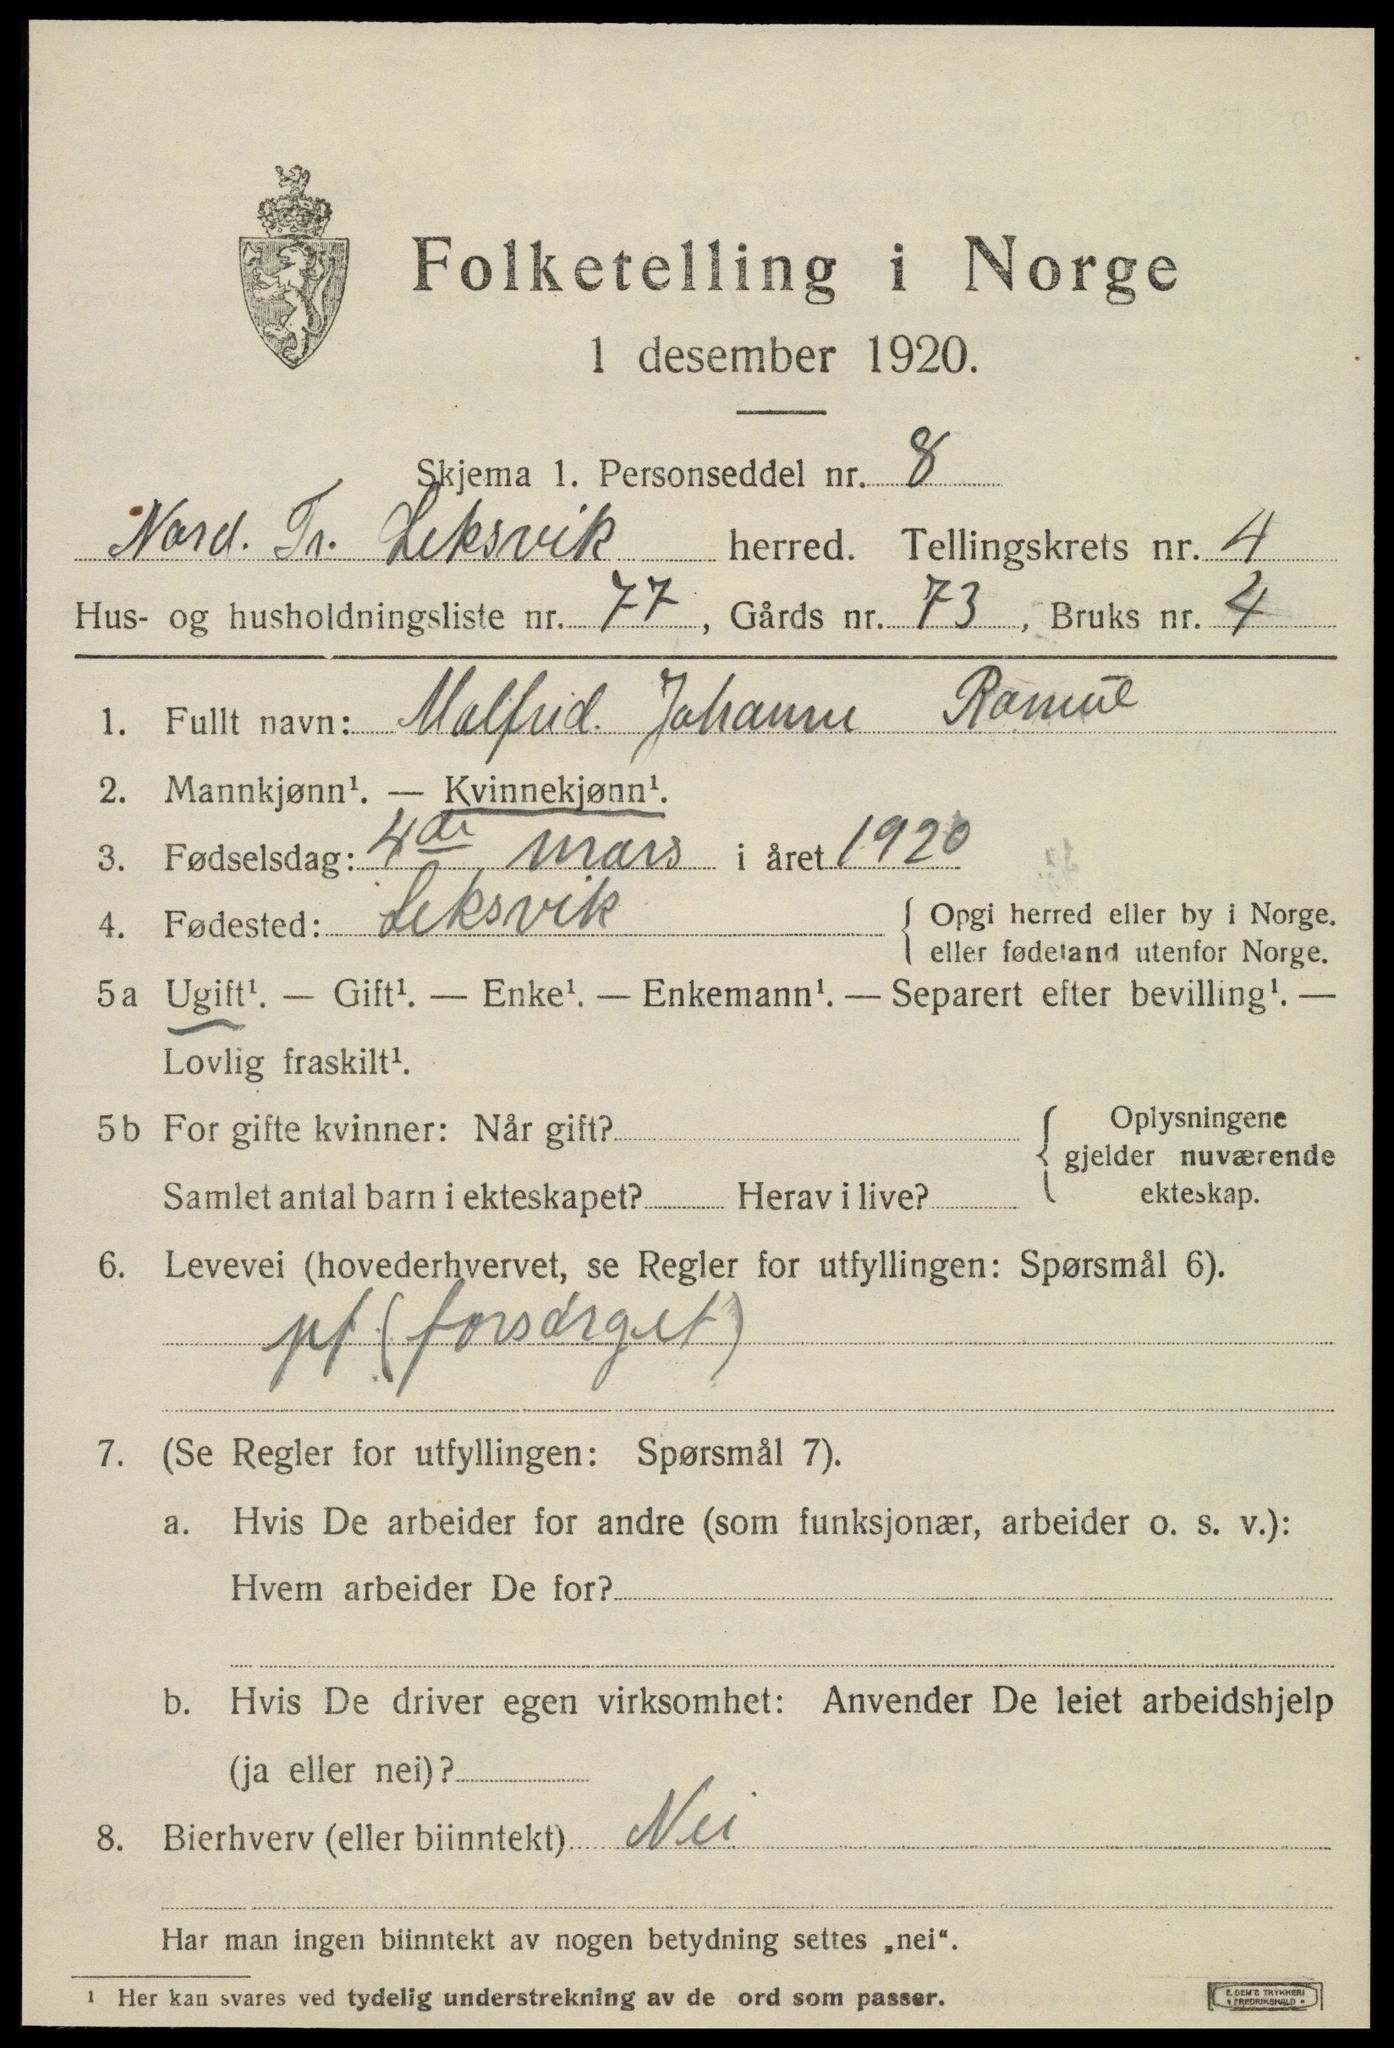 Folketelling i Norge
1 desember 1920.
Skjema 1. Personseddel nr. 8
Nord. Tr. Leksvik herred. Tellingskrets nr. 4
Hus- og husholdningsliste nr. 77, Gårds nr. 73, Bruks nr. 4
1. Fullt navn: Malfrid. Johanne
2. Mannkjønn¹. — Kvinnekjønn¹.
3. Fødselsdag: 4de mars i året 1920
4. Fødested: Leksvik { Opgi herred eller by i Norge.
eller fødeland utenfor Norge.
5a Ugift¹. — Gift¹. — Enke¹. — Enkemann¹. — Separert efter bevilling¹. —
Lovlig fraskilt¹.
5b For gifte kvinner: Når gift? { Oplysningene
gjelder nuværende
ekteskap.
Samlet antal barn i ekteskapet? Herav i live?
6. Levevei (hovederhvervet, se Regler for utfyllingen: Spørsmål 6).
pf (forsørget)
7. (Se Regler for utfyllingen: Spørsmål 7).
a. Hvis De arbeider for andre (som funksjonær, arbeider o. s. v.):
Hvem arbeider De for?
b. Hvis De driver egen virksomhet: Anvender De leiet arbeidshjelp
(ja eller nei)?
8. Bierhverv (eller biinntekt) Nei
Har man ingen biinntekt av nogen betydning settes „nei“.
¹ Her kan svares ved tydelig understrekning av de ord som passer.
E. SEM'S TRYKKERI
FREDRIKSHALD